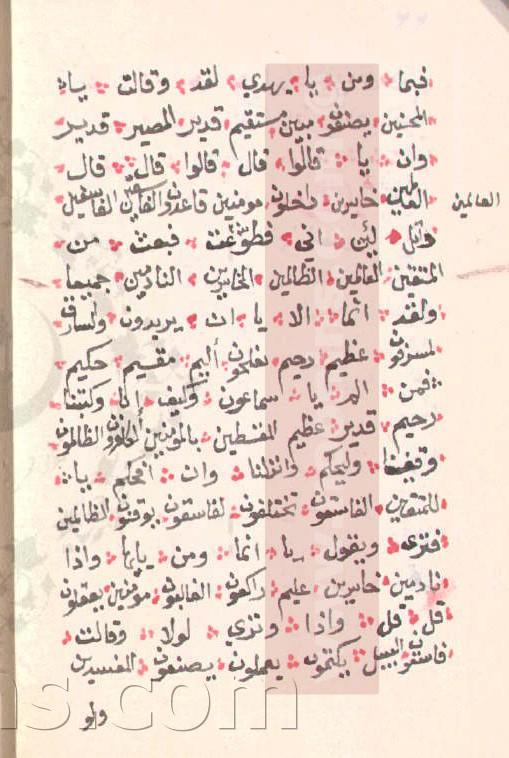 فبما ومن يا يهدي لقد وقالت يا
المحسنين يصنعون مبين مستقيم قدير المصير قدير
وان يا قالوا قال قالوا قال قال
العالمين خاسرين داخلون مومنين قاعدون الفاسقين الفاسقين
العالمين
واتل لئن اني فطوعت فبعث من
المتقين العالمين الظالمين الخاسرين النادمين جميعا
ولقد انما الا يا ان يريدون والسارق
لمسرفون عظيم رحيم تفلحون أليم مقيم حكيم
فمن الم يا سماعون وكيف انا وكتبنا
رحيم قدير عظيم المقسطين بالمؤمنين الكافرون الظالمون
وقفينا وليحكم وانزلنا وان افحكم يا
للمتقين الفاسقون تختلفون لفاسقون يوقنون الظالمين
فترى ويقول يا انما ومن يايها واذا
نادمين خاسرين عليم راكعون الغالبون مؤمنين يعقلون
قل قل واذا وترى لولا وقالت
فاسقون السبيل يكتمون يعملون يصنعون المفسدين
ولو
ns.com